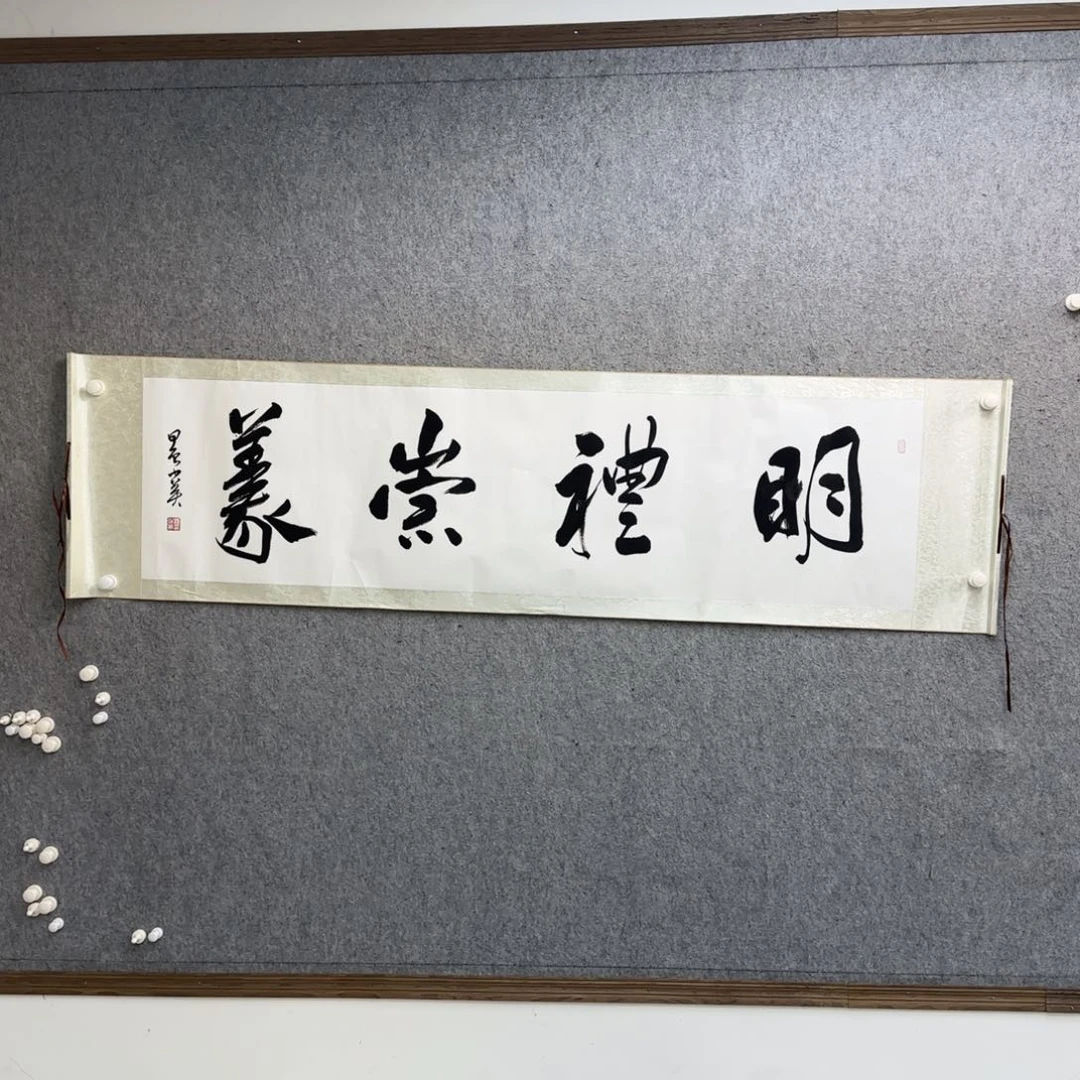 明禮崇義